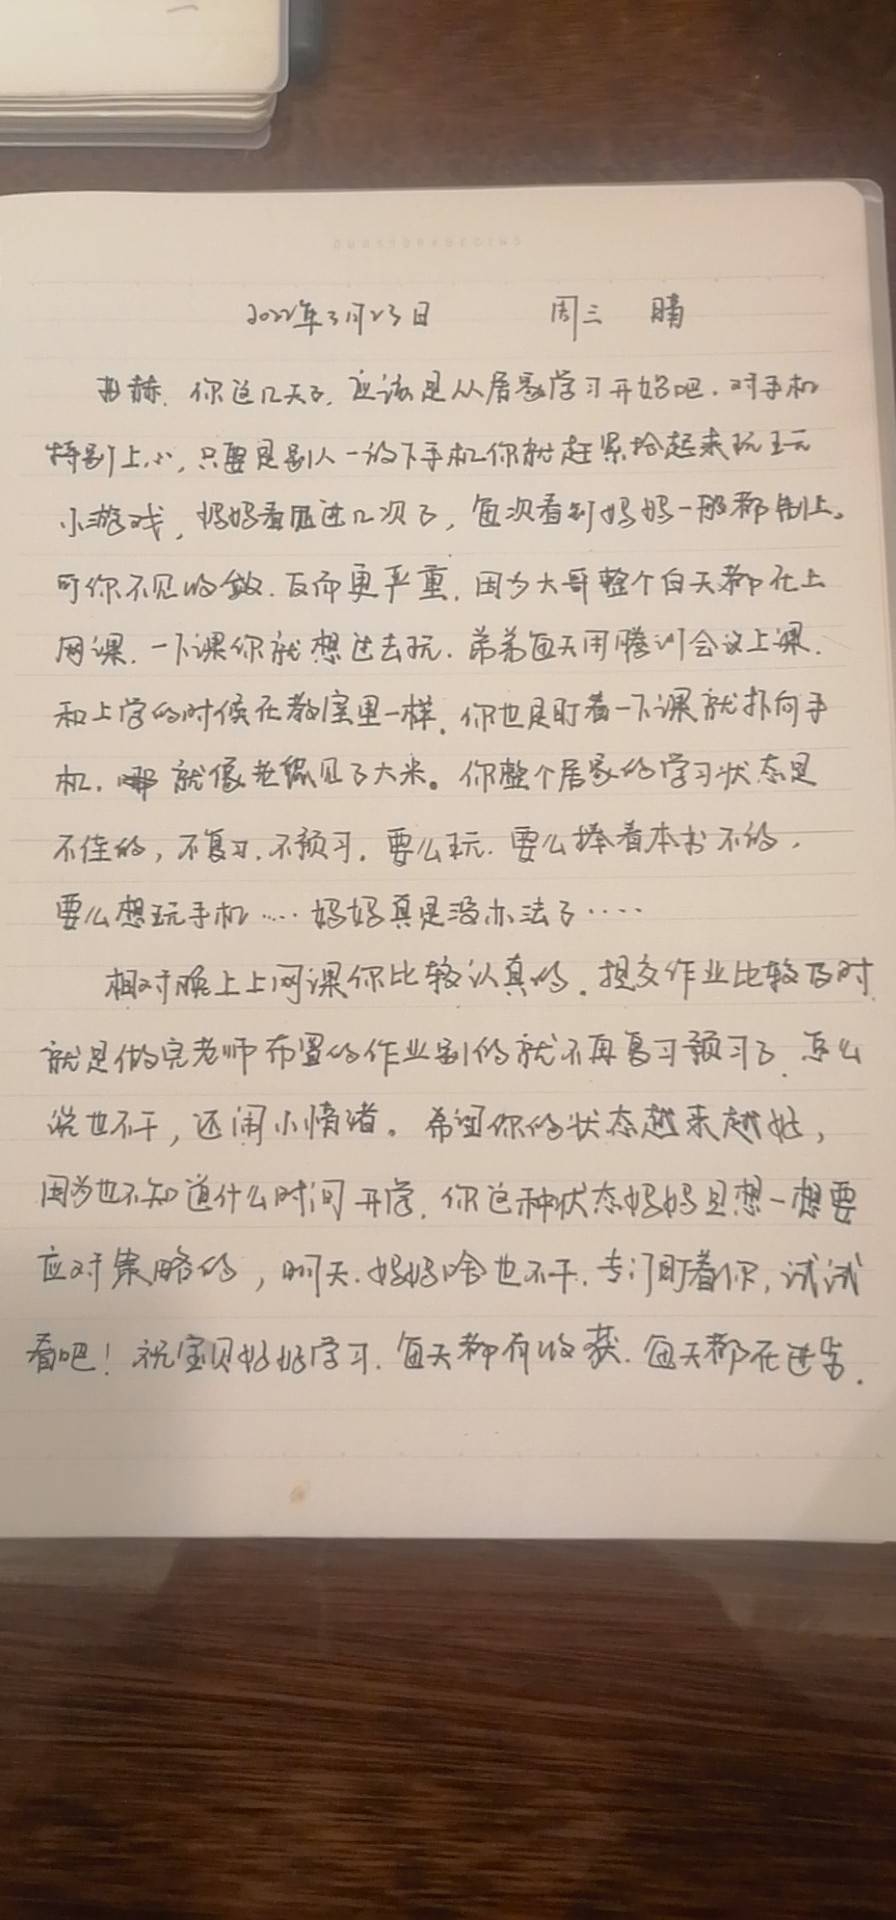 2022年3月23日 周三 晴
赫、你这几天了,应该是从居家学习开始吧.对手机
特别上心,只要是别人一放下手机你就赶紧拾起来玩玩
小游戏,妈妈看见过几次了,每次看到妈妈一般都制止。
可你不见收敛.反而更严重.因为大哥整个白天都在上
网课.一下课你就想过去玩.弟弟每天用腾训会议上课.
和上学的时候在教室里一样.你也是盯着一下课就扑向手
机.就像老鼠见了大米。你整个居家的学习状态是
不佳的,不复习.不预习.要么玩.要么捧着本书不放.
要么想玩手机……妈妈真是没办法了……
相对晚上上网课你比较认真的.提交作业比较及时
就是做完老师布置的作业别的就不再复习预习了.怎么
说也不干,还闹小情绪。希望你的状态越来越好,
因为也不知道什么时间开学.你这种状态妈妈且想一想要
应对策略的,明天.妈妈啥也不干.专门盯着你,试试
看吧!祝宝贝好好学习.每天都有收获.每天都在进步.